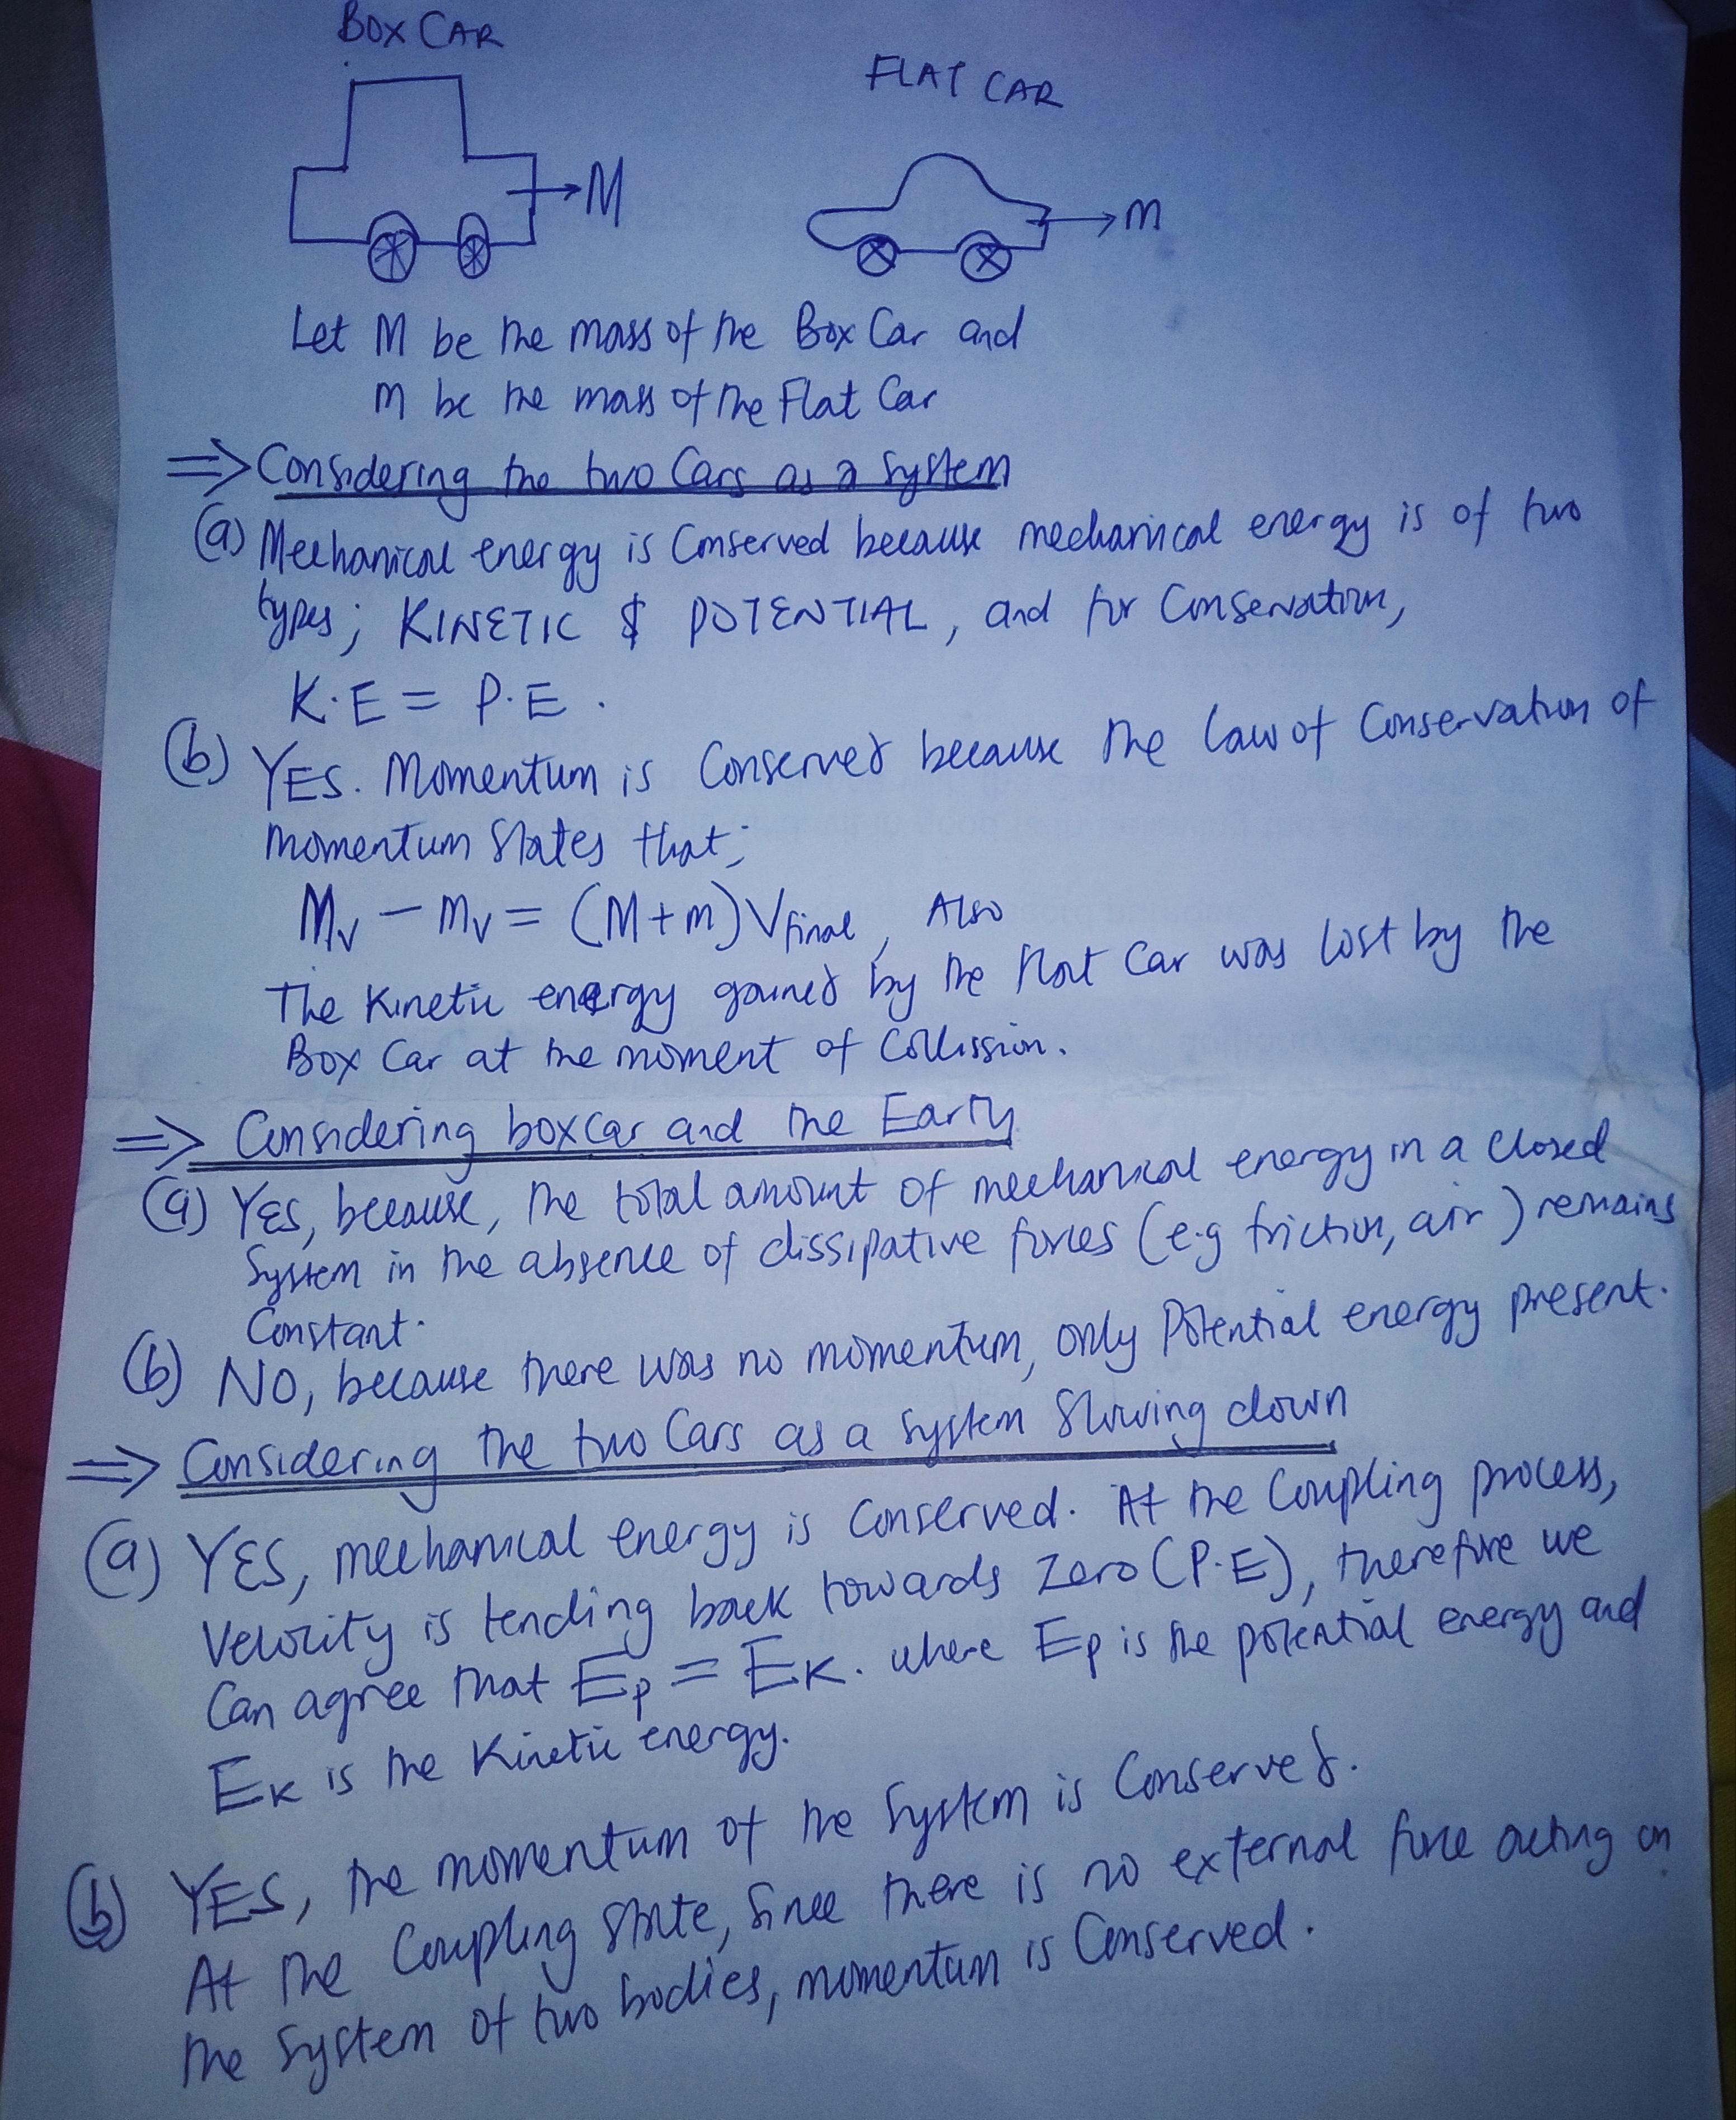 BOX CAR
FLAT CAR
M
m
Let M be the mass of the Box Car and
m be the mass of the Flat Car
⇒ Considering the two Cars as a System
(a) Mechanical energy is Conserved because mechanical energy is of two
types; KINETIC & POTENTIAL, and for Conservation,
K.E = P.E.
(b) YES. Momentum is Conserved because the law of Conservation of
momentum States that;
Mv - mv = (M+m)Vfinal, Also
The Kinetic energy gained by the flat Car was lost by the
Box Car at the moment of Collission.
⇒ Considering boxcar and the Earth
(a) YES, because, the total amount of mechanical energy in a closed
System in the absence of dissipative forces (e.g friction, air) remains
Constant.
(b) NO, because there was no momentum, only Potential energy present.
⇒ Considering the two Cars as a System Slowing down
(a) YES, mechanical energy is Conserved. At the Coupling process,
Velocity is tending back towards Zero (P.E), therefore we
Can agree that Ep = EK. where Ep is the potential energy and
EK is the Kinetic energy.
(b) YES, the momentum of the System is Conserved.
At the Coupling State, Since there is no external force acting on
the System of two bodies, momentum is Conserved.